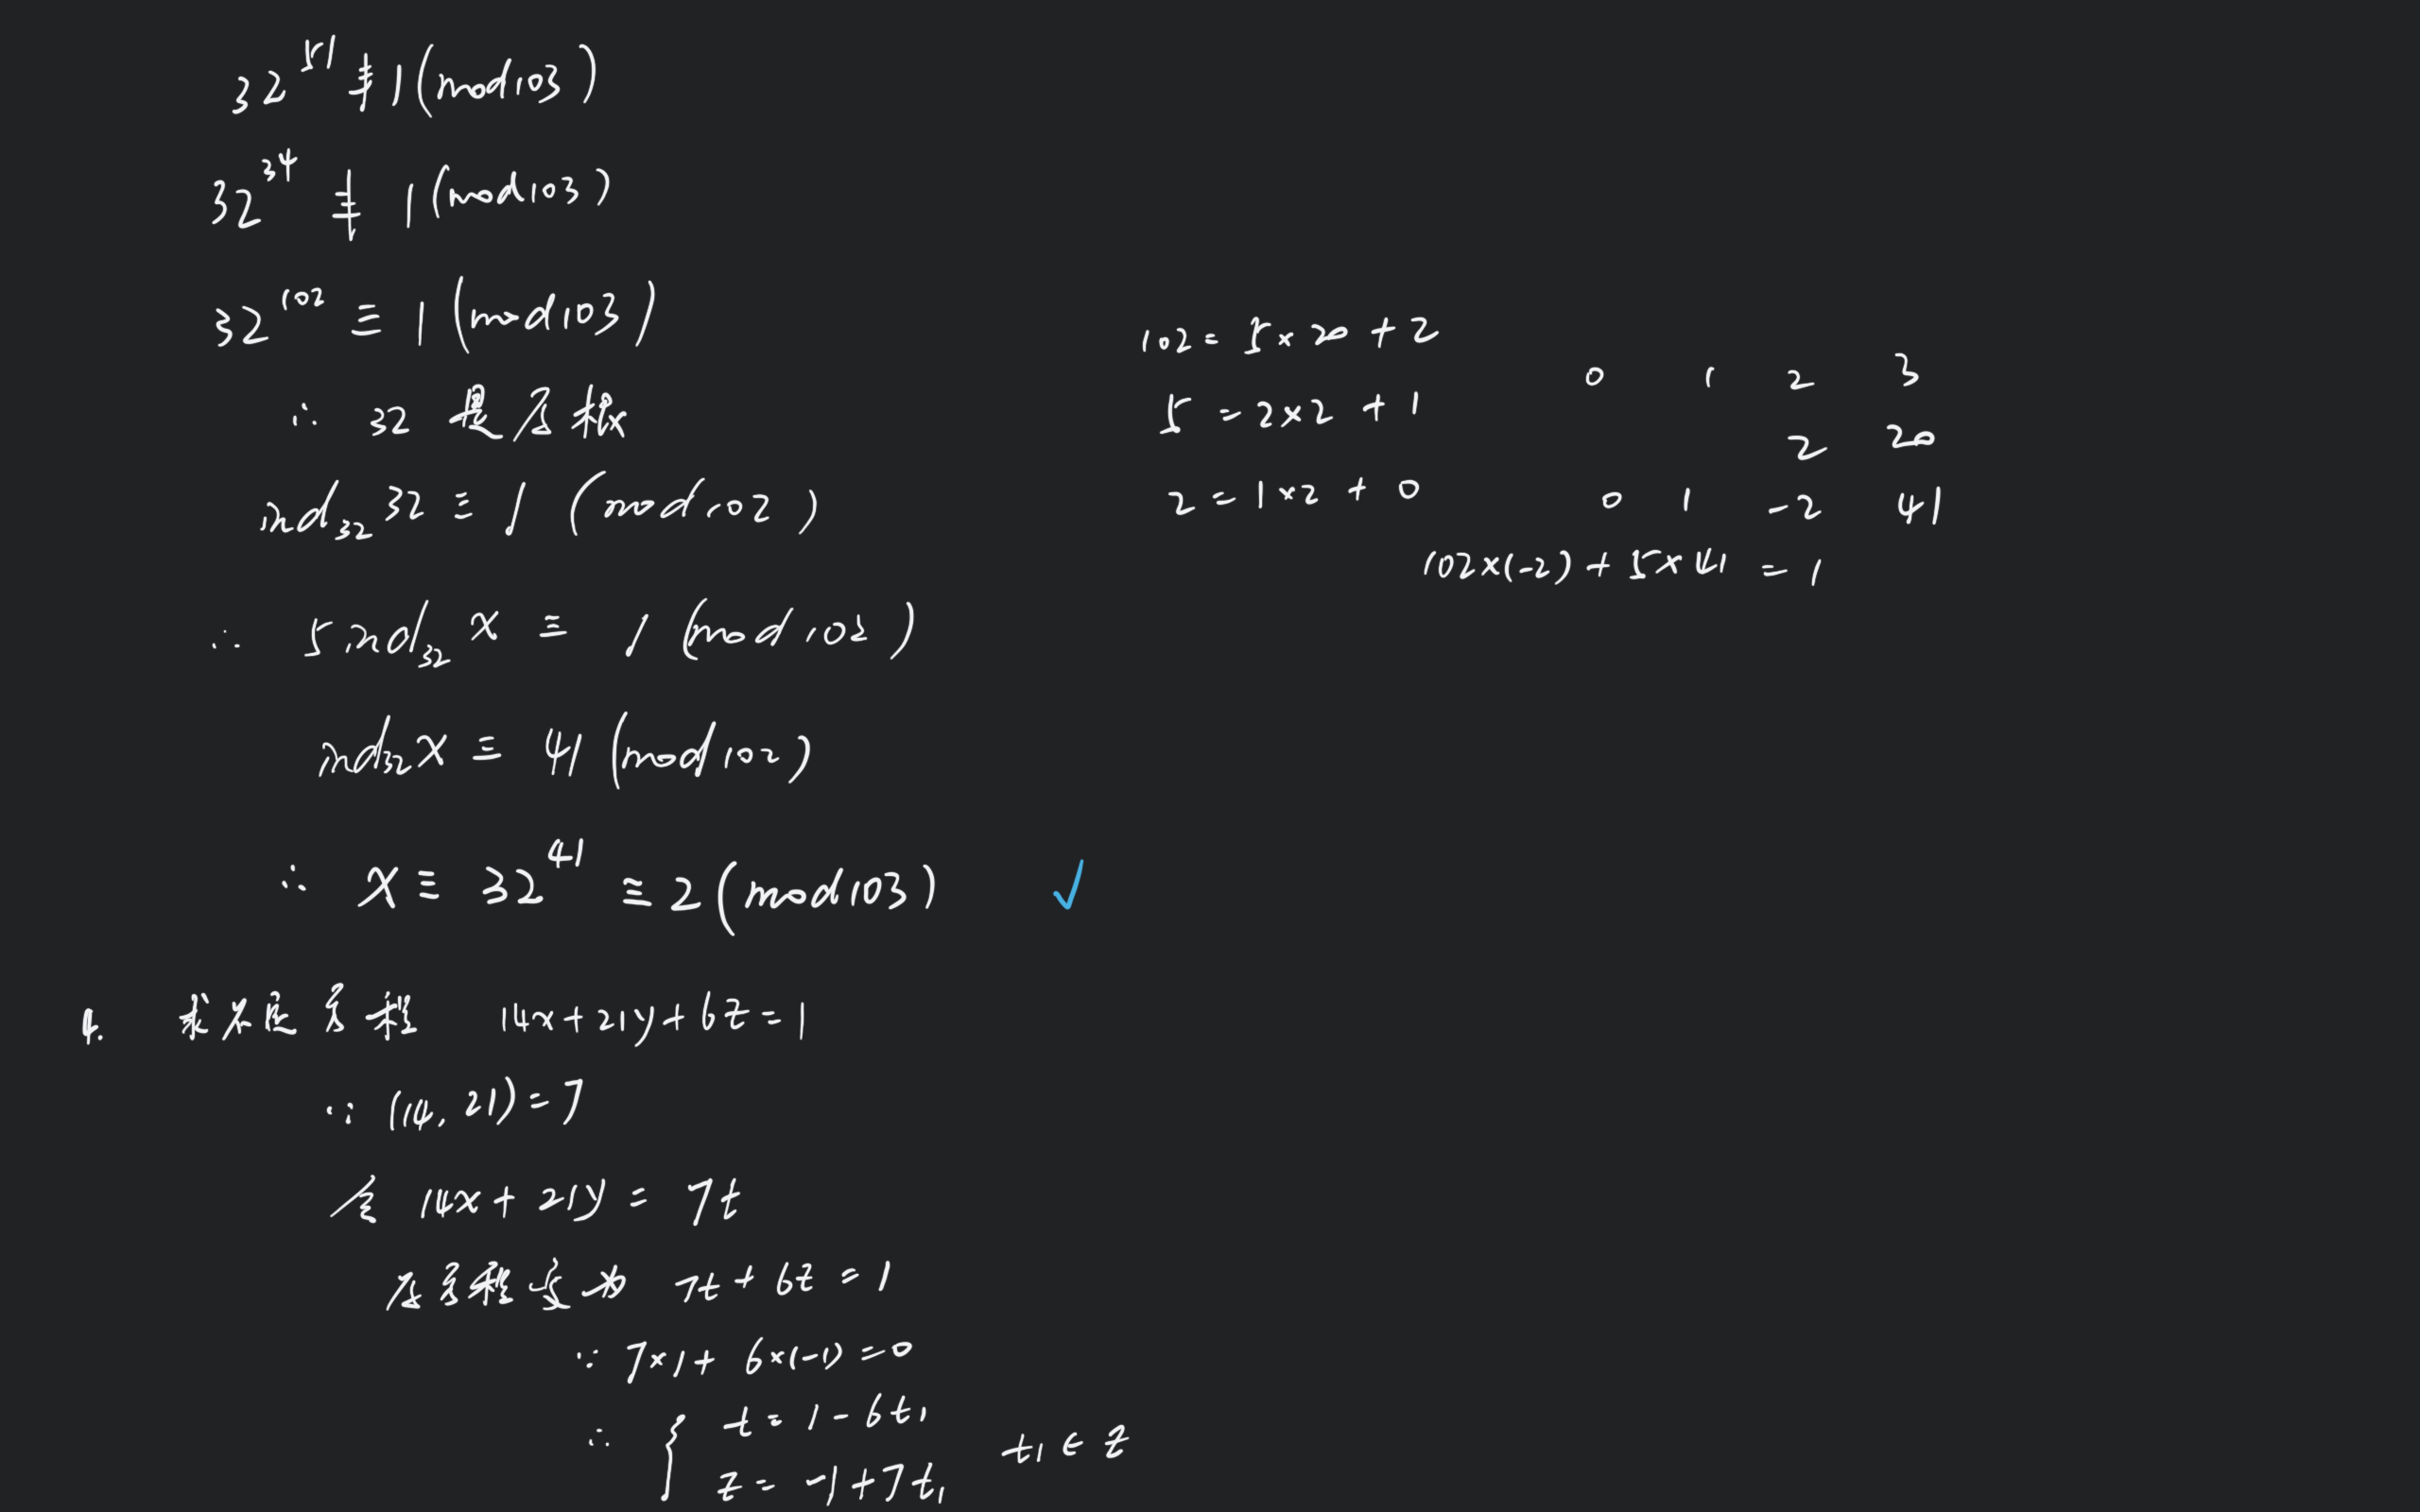 32^51 ≢ 1 (mod 103)
32^34 ≢ 1 (mod 103)
32^102 ≡ 1 (mod 103)
∴ 32 是原根
ind₃₂ 32 ≡ 1 (mod 102)
∴ 5 ind₃₂ x ≡ 1 (mod 102)
ind₃₂ x ≡ 41 (mod 102)
∴ x ≡ 32^41 ≡ 2 (mod 103) ✓
102 = 5 × 20 + 2
5 = 2 × 2 + 1
2 = 1 × 2 + 0
0 1 2 3
2 20
0 1 -2 41
102 × (-2) + 5 × 41 = 1
4. 求不定方程 14x + 21y + 6z = 1
∵ (14, 21) = 7
令 14x + 21y = 7t
原方程变为 7t + 6z = 1
∵ 7×1 + 6×(-1) = 0
∴ { t = 1 - 6t₁
z = -1 + 7t₁ t₁ ∈ Z